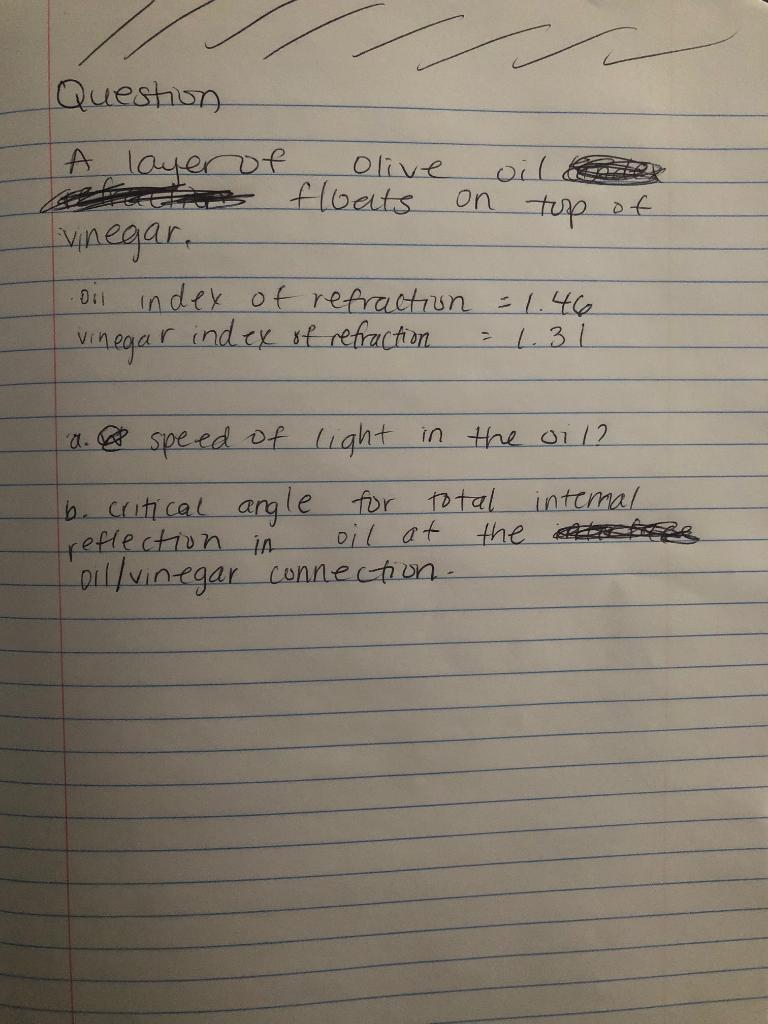 Question
A layer of olive oil
floats on top of
vinegar.
oil index of refraction = 1.46
vinegar index of refraction = 1.31
a. speed of light in the oil?
b. critical angle for total internal
reflection in oil at the
oil/vinegar connection.